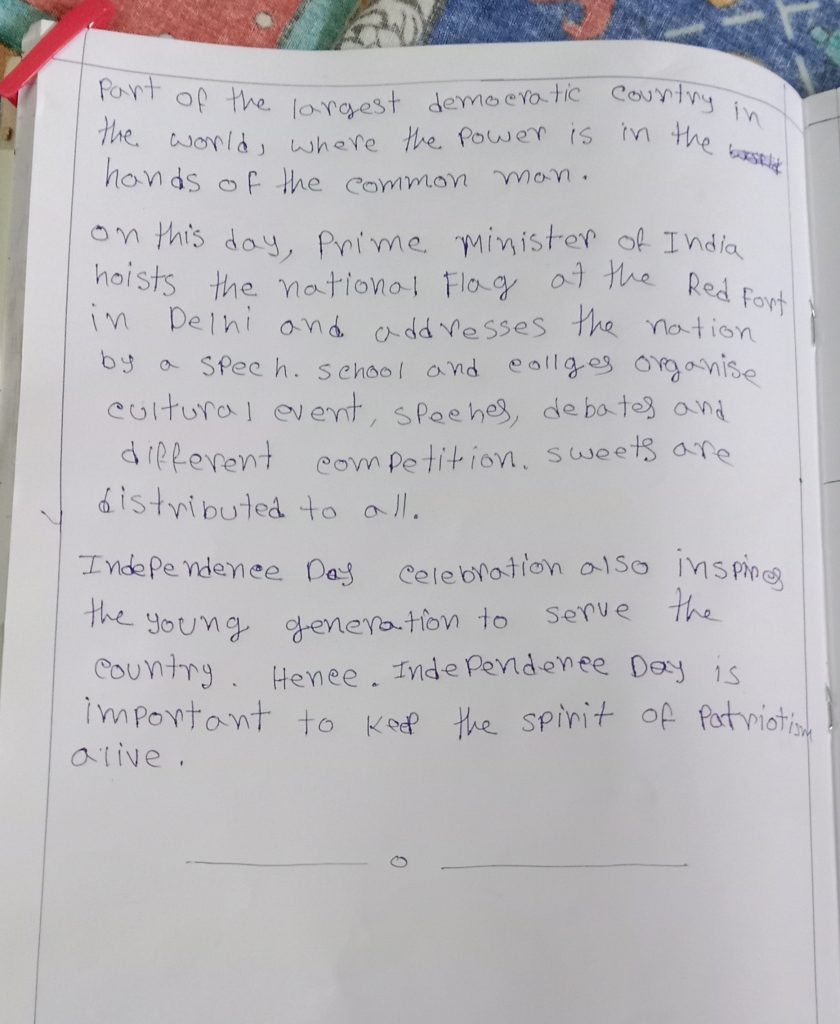 Part of the largest democratic country in
the world, where the power is in the
hands of the common man.
on this day, Prime Minister of India
hoists the national Flag at the Red Fort
in Delhi and addresses the nation
by a speech. school and collges organise
cultural event, speehes, debates and
different competition. sweets are
distributed to all.
Independence Day celebration also inspires
the young generation to serve the
country. Hence. Independence Day is
important to keep the spirit of Patriotism
alive.